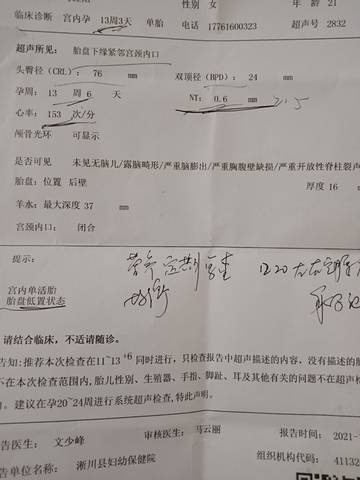 性别 女 年龄 21
临床诊断 宫内孕 13周3天 单胎 电话 17761600323 超声号 2832
超声所见: 胎盘下缘紧邻宫颈内口
头臀径(CRL): 76 mm 双顶径(BPD): 24 mm
孕周: 13 周 6 天 NT: 0.6 mm
心率: 153 次/分
颅骨光环 可显示
是否可见 未见无脑儿/露脑畸形/严重脑膨出/严重胸腹壁缺损/严重开放性脊柱裂
胎盘: 位置 后壁 厚度 16
羊水: 最大深度 37 mm
宫颈内口: 闭合
提示:
宫内单活胎
胎盘低置状态
请结合临床, 不适请随诊。
告知: 推荐本次检查在11~13+6 同时进行, 只检查报告中超声描述的内容, 没有描述的
不在本次检查范围内, 胎儿性别、生殖器、手指、脚趾、耳及其他有关的问题不在超声
。建议在孕20~24周进行系统超声检查, 特此声明。
告医生: 文少峰 审核医生: 马云丽 报告时间: 2021-
告单位名称: 淅川县妇幼保健院 组织机构代码: 41132